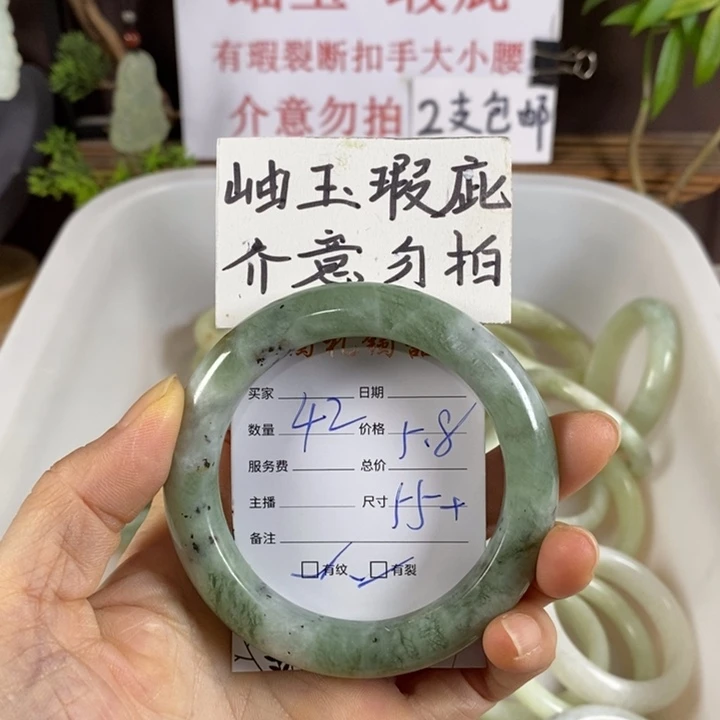 岫玉 瑕疵
有瑕裂断扣手大小腰
介意勿拍
2支包邮
岫玉瑕疵
介意勿拍
买家 日期
数量 42 价格 5.8
服务费 总价
主播 尺寸 55+
备注
有纹 有裂